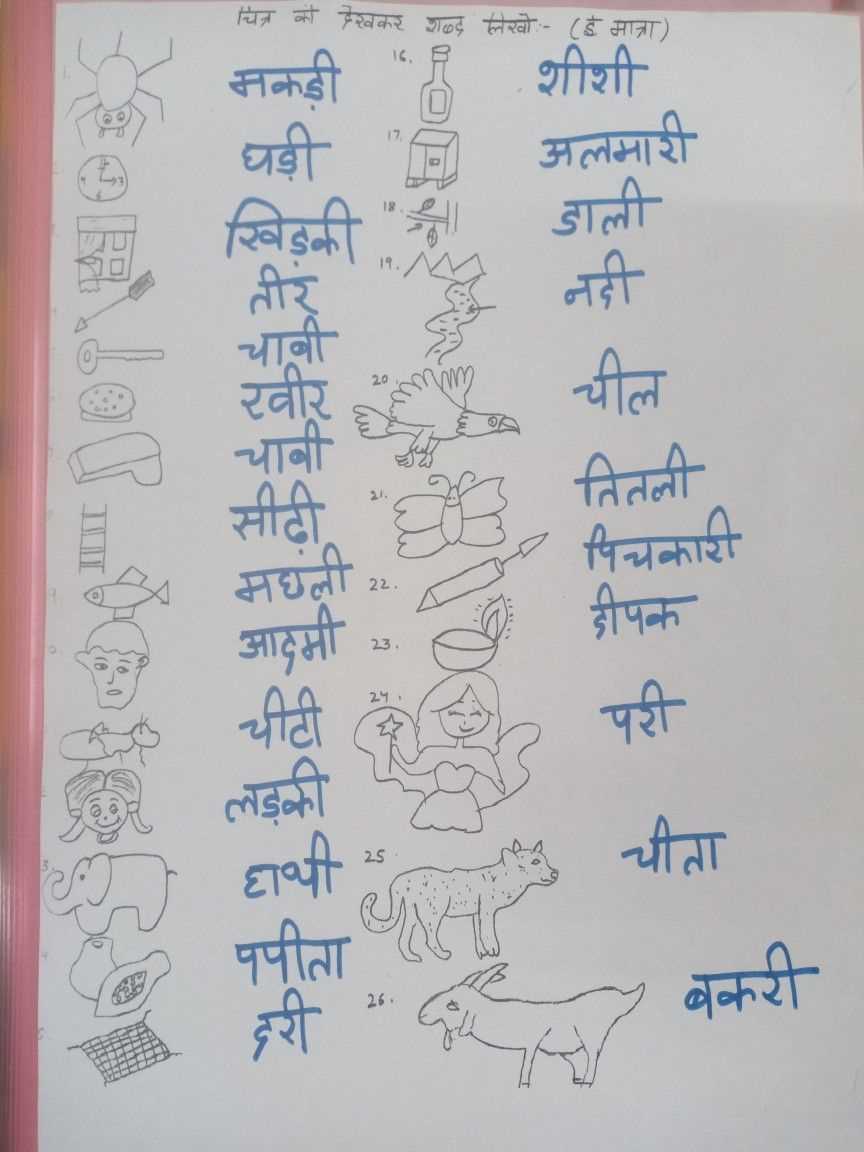 चित्र को देखकर शब्द लिखो:- (ई मात्रा)
मकड़ी
घड़ी
खिड़की
तीर
चाबी
खीर
चाबी
सीढ़ी
मछली
आदमी
चीटी
लड़की
हाथी
पपीता
दरी
16. शीशी
17. अलमारी
18. डाली
19. नदी
20. चील
21. तितली
22. पिचकारी
23. दीपक
24. परी
25 चीता
26. बकरी